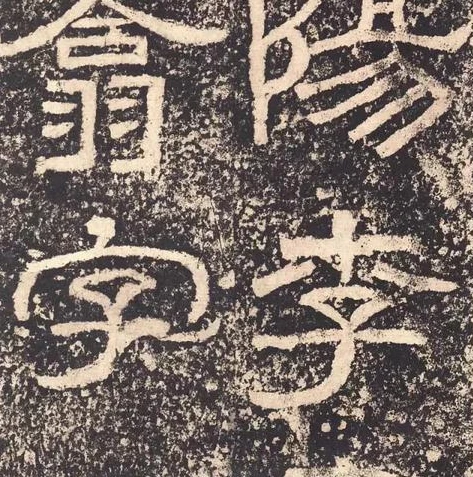 陽李
翕字